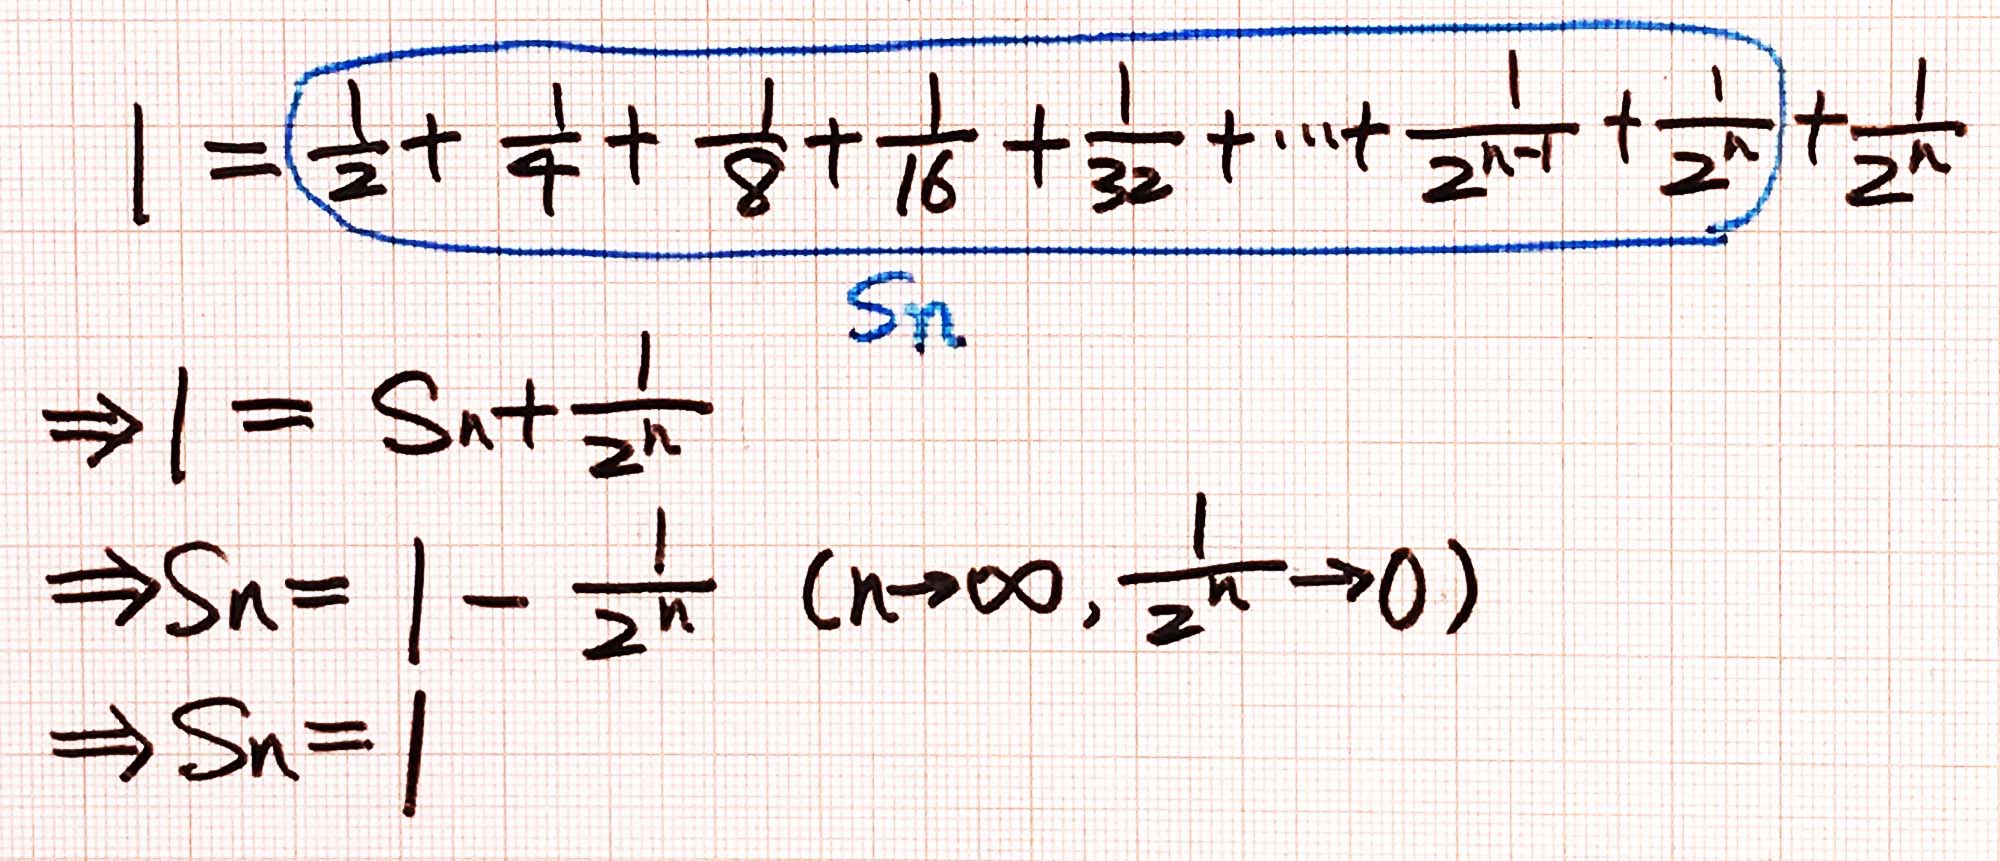 1 = 1/2 + 1/4 + 1/8 + 1/16 + 1/32 + ... + 1/2^(n-1) + 1/2^n + 1/2^n
Sn
⇒ 1 = Sn + 1/2^n
⇒ Sn = 1 - 1/2^n (n→∞, 1/2^n → 0)
⇒ Sn = 1